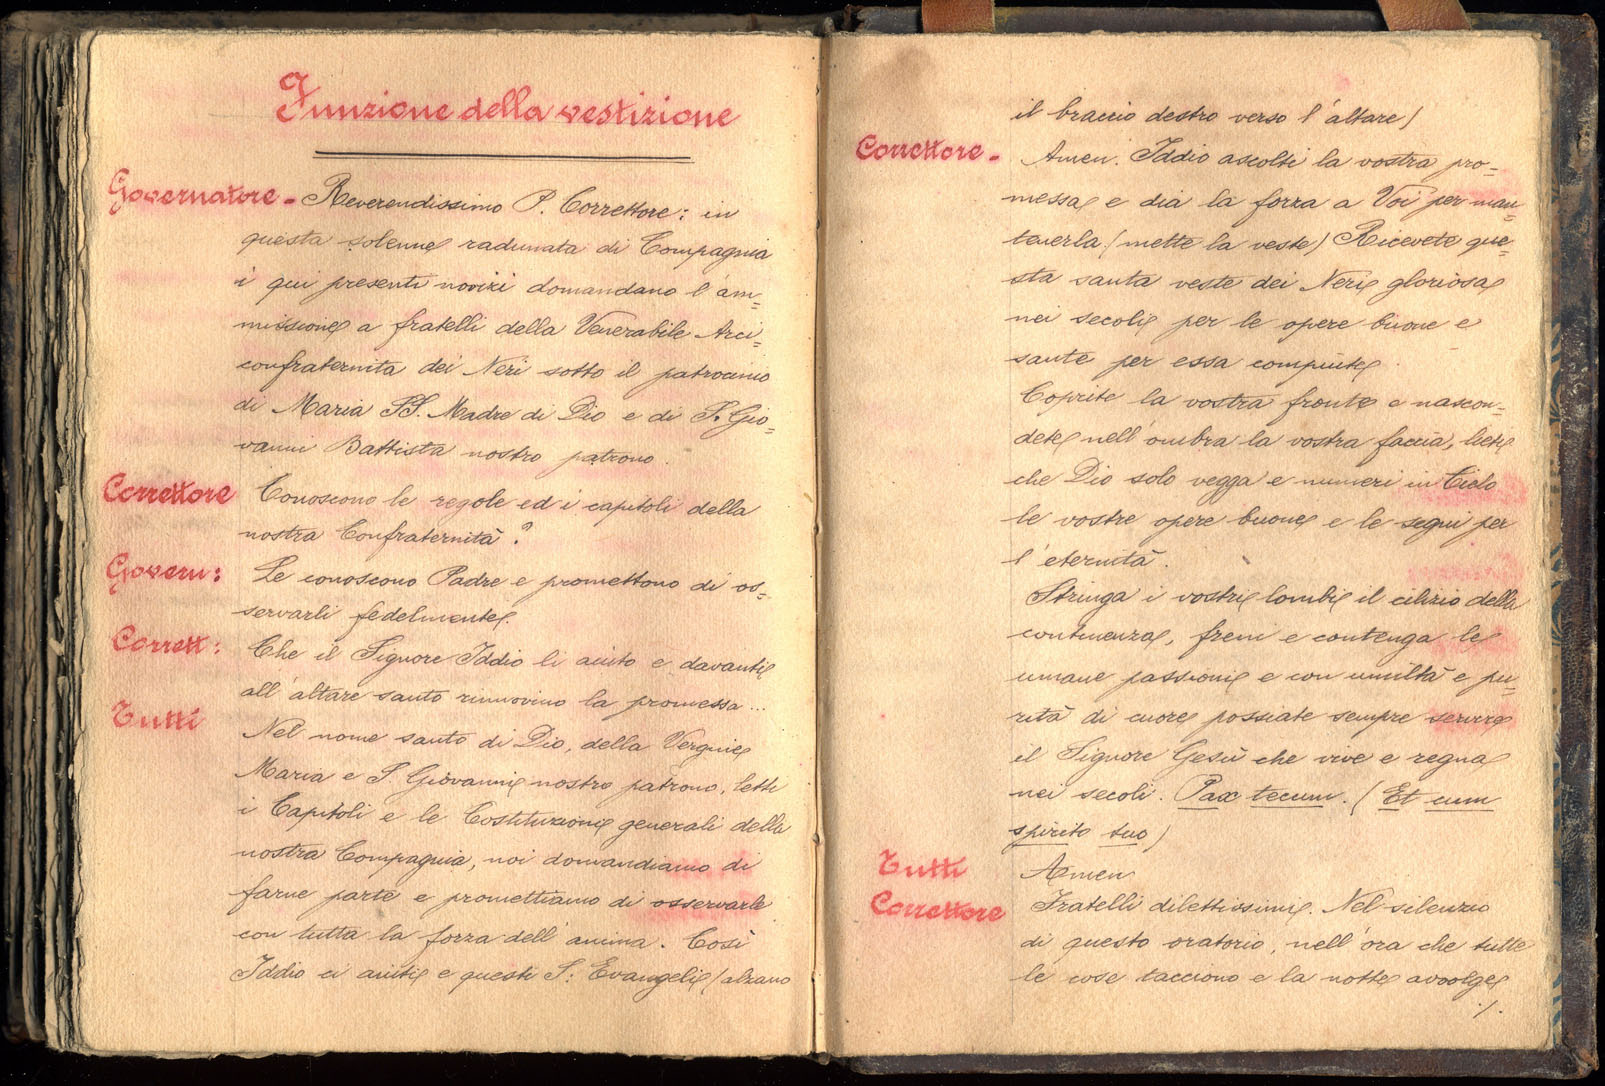 Funzione della vestizione
Governatore - Reverendissimo P. Correttore: in
questa solenne radunata di Compagnia
i qui presenti novizi domandano l'am=
missione a fratelli della Venerabile Arci=
confraternita dei Neri sotto il patrocinio
di Maria SS. Madre di Dio e di S. Gio=
vanni Battista nostro patrono.
Correttore Conoscono le regole ed i capitoli della
nostra Confraternità?
Govern: Le conoscono Padre e promettono di os=
servarli fedelmente.
Corrett: Che il Signore Iddio li aiuto e davanti
all'altare santo rinnovino la promessa...
Tutti Nel nome santo di Dio, della Vergine
Maria e S. Giovanni nostro patrono, letti
i Capitoli e le Costituzioni generali della
nostra Compagnia, noi domandiamo di
farne parte e promettiamo di osservarle
con tutta la forza dell'anima. Così
Iddio ci aiuti e questi S: Evangeli (alzano
il braccio destro verso l'altare)
Correttore - Amen. Iddio ascolti la vostra pro=
messa e dia la forza a Voi per man=
tenerla. (mette la veste) Ricevete que=
sta santa veste dei Neri gloriosa
nei secoli per le opere buone e
sante per essa compiute.
Coprite la vostra fronte e nascon=
dete nell'ombra la vostra faccia, lieti
che Dio solo vegga e numeri in Cielo
le vostre opere buone e le segni per
l'eternità.
Stringa i vostri lombi il cilizio della
continenza, freni e contenga le
umane passioni e con umiltà e pu=
rità di cuore possiate sempre servire
il Signore Gesù che vive e regna
nei secoli. Pax tecum. (Et cum
spirito tuo)
Tutti Amen
Correttore Fratelli dilettissimi. Nel silenzio
di questo oratorio, nell'ora che tutte
le cose tacciono e la notte avvolge
./.